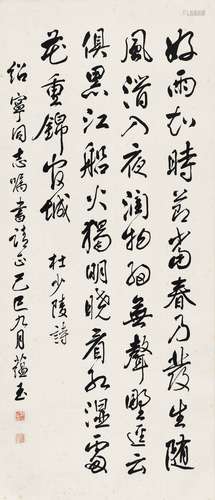 好雨知時節當春乃發生隨
風潛入夜潤物細無聲野逕云
俱黑江船火獨明曉看紅濕處
花重錦官城
杜少陵詩
紹寧同志囑書請正己巳九月